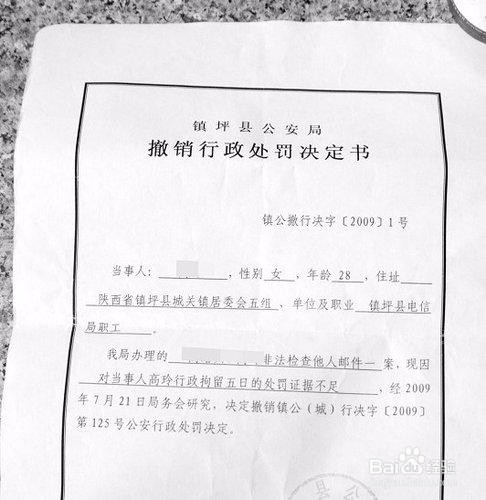 镇坪县公安局
撤销行政处罚决定书
镇公撤行决字〔2009〕1号
当事人：，性别 女 ，年龄 28 ，住址
陕西省镇坪县城关镇居委会五组 、单位及职业 镇坪县电信
局职工 。
我局办理的 非法检查他人邮件一 案，现因
对当事人高玲行政拘留五日的处罚证据不足 ，经2009
年7月21日局务会研究，决定撤销镇公（城）行决字〔2009〕
第125号公安行政处罚决定。
Baidu经验